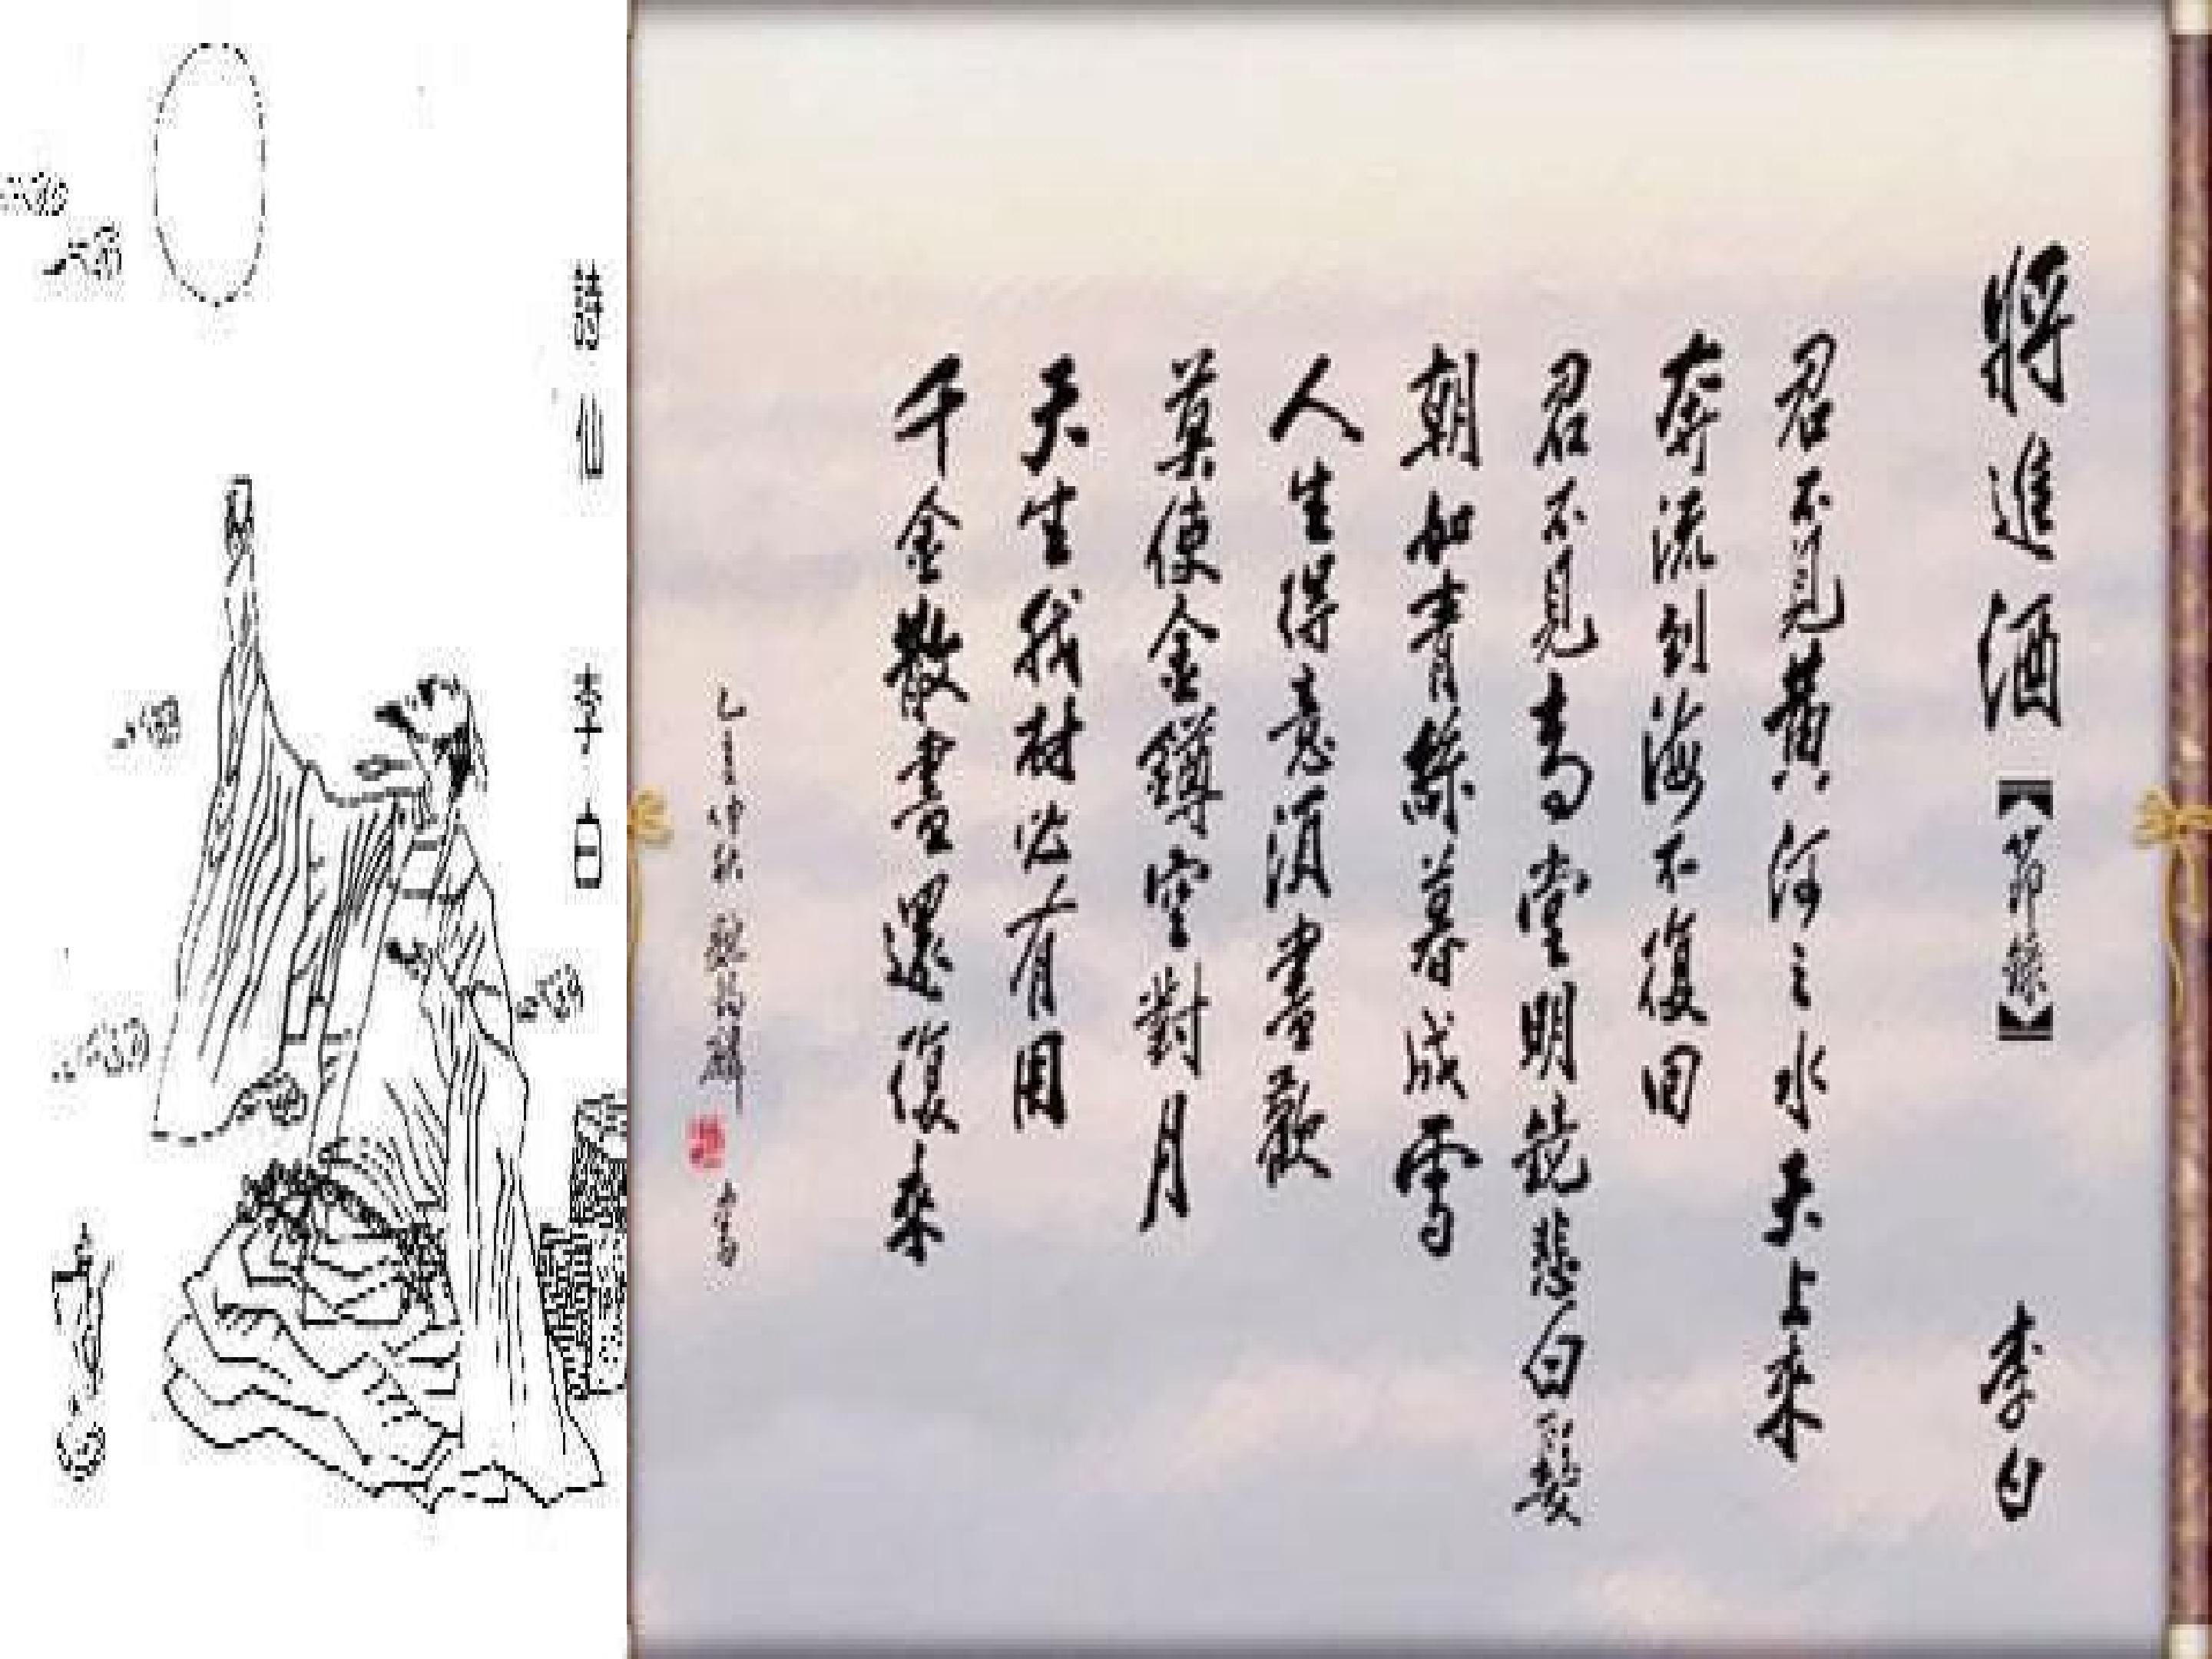 將進酒【節錄】 李白
君不見黃河之水天上來
奔流到海不復回
君不見高堂明鏡悲白髮
朝如青絲暮成雪
人生得意須盡歡
莫使金罇空對月
天生我材必有用
千金散盡還復來
仲秋 書
詩仙 李白